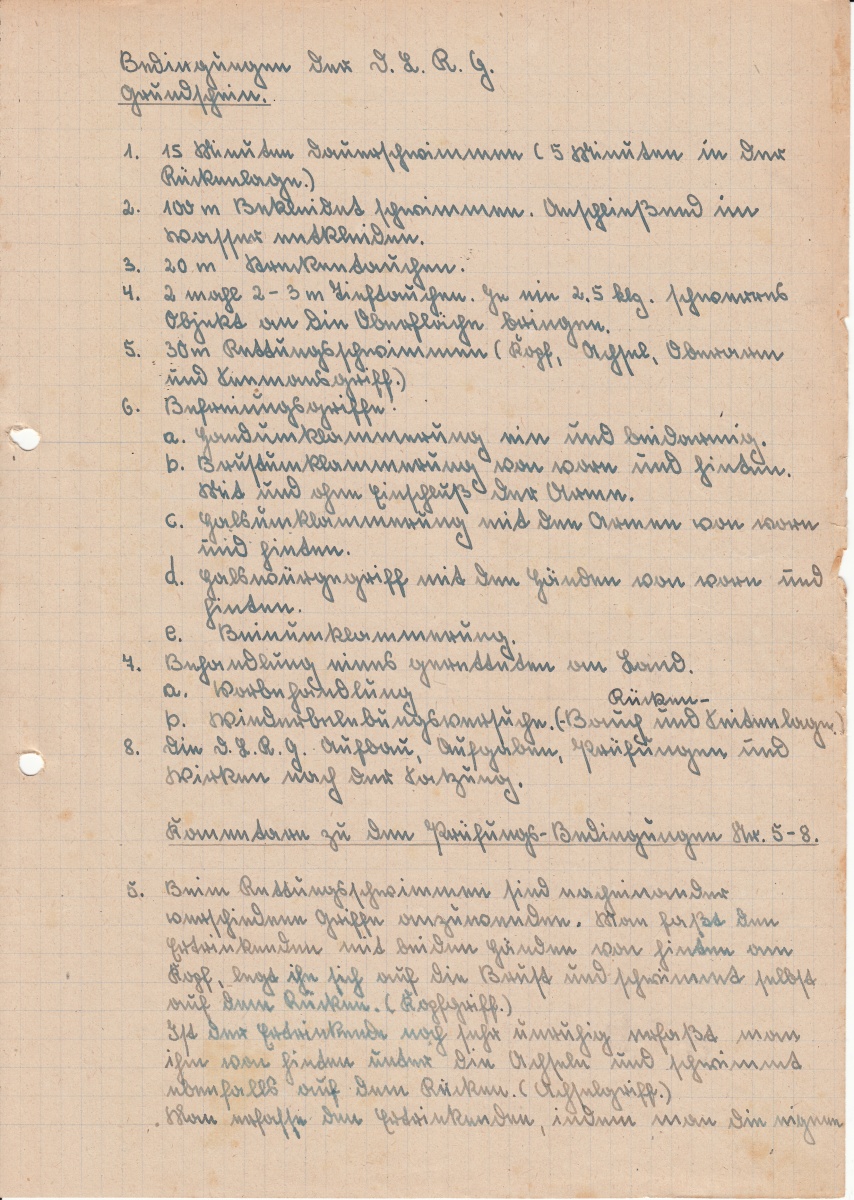 Bedingungen der D. L. R. G.
Grundschein.
1. 15 Minuten Dauerschwimmen (5 Minuten in der
Rückenlage.)
2. 100 m Bekleidet schwimmen. Anschließend im
Wasser entkleiden.
3. 20 m Streckentauchen.
4. 2 mahl 2-3 m Tieftauchen. Je ein 2.5 klg. schwerres
Objekt an die Oberfläche bringen.
5. 30 m Rettungsschwimmen (Kopf, Achsel, Oberarm
und Seemansgriff.)
6. Befreiungsgriffe.
a. Handumklammerung ein und beidarmig.
b. Brustumklammerung von vorn und hinten.
Mit und ohne Einschluß der Arme.
c. Halsumklammerung mit den Armen von vorn
und hinten.
d. Halswürgegriff mit den Händen von vorn und
hinten.
e. Beinumklammerung.
7. Behandlung eines geretteten an Land.
a. Vorbehandlung
Rücken-
b. Wiederbelebungsversuche. (-Bauch und Seitenlage.)
8. Die D. L. R. G. Aufbau, Aufgaben, Prüfungen und
Wirken nach der Satzung.
Komentare zu den Prüfungs-Bedingungen Nr. 5-8.
5. Beim Rettungsschwimmen sind nacheinander
verschiedene Griffe anzuwenden. Man faßt den
Ertrinkenden mit beiden Händen von hinten am
Kopf, legt ihn sich auf die Brust und schwimmt selbst
auf dem Rücken. (Kopfgriff.)
Ist der Ertrinkende noch sehr unruhig erfaßt man
ihn von hinten unter die Achseln und schwimmt
ebenfalls auf dem Rücken. (Achselgriff.)
Man erfasse den Ertrinkenden, indem man die eigene